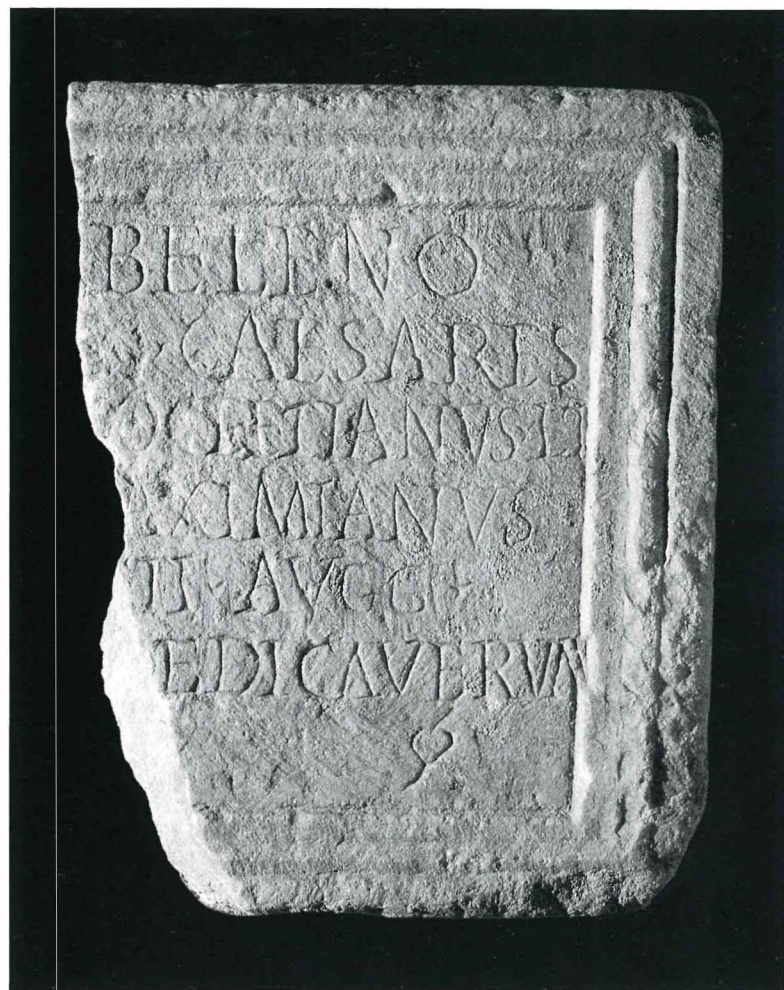 BELENO
CAESARES
OCLETIANVS ET
AXIMIANVS
TI AVGG
EDICAVERVN